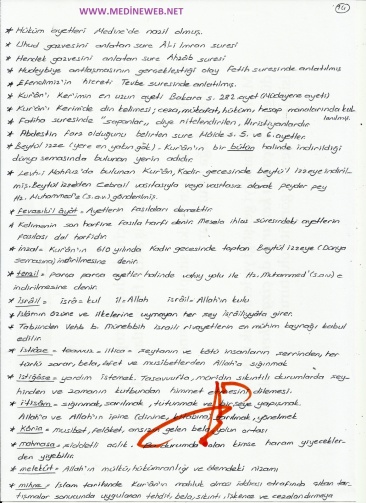 www.MEDİNEWEB.NET
* Hüküm ayetleri Medine'de nazil olmuş.
* Uhud gazvesini anlatan sure Âl-i İmran suresi
* Hendek gazvesini anlatan sure Ahzâb suresi
* Hudeybiye antlaşmasının gerçekleştiği olay Fetih suresinde anlatılmış
* Efendimiz'in hicreti Tevbe suresinde anlatılmış.
* Kur'ân'ı Kerimin en uzun ayeti Bakara s. 282 ayet (Müdayene ayeti)
* Kur'ân'ı Kerimde din kelimesi; ceza, mükafat, hüküm, hesap manalarında kul
lanılmış.
* Fatiha suresinde "sapanlar" diye nitelendirilen, Hıristiyanlardır
* Abdestin farz olduğunu belirten sure Mâide s. 5. ve 6. ayetler.
* Beytül izze (yere en yakın gök) - Kur'ân'ın bir bütün halinde indirildiği
dünya semasında bulunan yerin adıdır.
* Levh-i Mahfuz'da bulunan Kur'ân, Kadir gecesinde beytü'l izzeye indiril-
miş. Beytül izzeden Cebrail vasıtasıyla veya vasıtasız olarak peyder pey
Hz. Muhammed'e (s.a.v.) gönderilmiş.
* Fevasılü'l âyât = Ayetlerin fasılaları demektir.
* Kelimenin son harfine fasıla harfi denir. Mesela ihlas süresindeki ayetlerin
fasılası dal harfidir.
* İnzal = Kur'ân'ın 610 yılında Kadir gecesinde toptan Beytül izzeye (Dünya
semasına) indirilmesine denir.
* tenzil = parça parça ayetler halinde vahiy yolu ile Hz. Muhammed (s.a.v) e
indirilmesine denir.
* İsrâil = isrâ = kul il = Allah isrâil = Allah'ın kulu
* İslâmın özüne ve ilkelerine uymayan her şey israiliyyâta girer.
* Tabiinden Vehb b. Münebbih israili rivayetlerin en mühim kaynağı kabul
edilir.
* istiâze = teavvuz = iltica = şeytanın ve kötü insanların şerrinden, her
türlü zarar, bela, afet ve musibetlerden Allah'a sığınmak
* istigâse = yardım istemek. Tasavvufta, müridin sıkıntılı durumlarda şey-
hinden ve zamanın kutbundan himmet etmesini dilemesi.
* i'tisâm = sığınmak, sarılmak, tutunmak ve bir şeye yapışmak.
Allah'a ve Allah'ın ipine (dinine, kitabına) sarılmak, yönelmek
* Kâria = musibet, felâket, ansızın gelen bela, yolun ortası
* mahmasa = şiddetli açlık. Bu durumda olan kimse haram yiyecekler-
den yiyebilir.
* melekût = Allah'ın mülkü, hükümranlığı ve âlemdeki nizamı
* mihne = İslam tarihinde Kur'ân'ın mahluk olması iddiası etrafında çıkan tar-
tışmalar sonucunda uygulanan tehdit, bela, sıkıntı, işkence ve cezalandırmaya